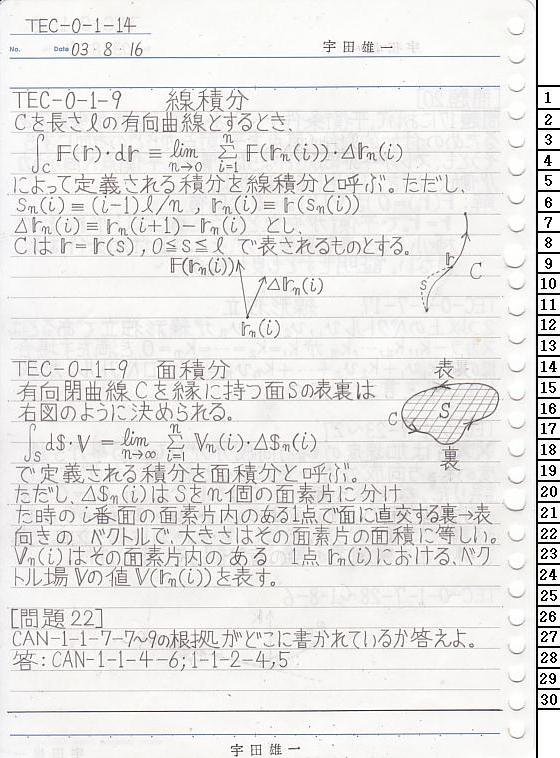 TEC-0-1-14
No. Date 03・8・16 宇田雄一
TEC-0-1-9 線積分
Cを長さℓの有向曲線とするとき、
∫_C 𝔽(𝕣)・d𝕣 ≡ lim_{n→0} Σ_{i=1}^{n} 𝔽(𝕣n(i))・Δ𝕣n(i)
によって定義される積分を線積分と呼ぶ。ただし、
Sn(i)≡(i-1)ℓ/n , 𝕣n(i)≡𝕣(Sn(i))
Δ𝕣n(i)≡𝕣n(i+1)-𝕣n(i) とし、
Cは𝕣=𝕣(s), 0≦s≦ℓ で表されるものとする。
𝔽(𝕣n(i))
Δ𝕣n(i)
𝕣n(i)
𝕣
S
C
TEC-0-1-9 面積分
有向閉曲線Cを縁に持つ面Sの表裏は
右図のように決められる。
∫_S d𝕊・𝕍 = lim_{n→∞} Σ_{i=1}^{n} 𝕍n(i)・Δ𝕊n(i)
で定義される積分を面積分と呼ぶ。
表
C
S
裏
ただし、Δ𝕊n(i)はSをn個の面素片に分け
た時のi番面の面素片内のある1点で面に直交する裏→表
向きの ベクトルで、大きさはその面素片の面積に等しい。
𝕍n(i)はその面素片内の ある 1点𝕣n(i)における、ベク
トル場𝕍の値𝕍(𝕣n(i))を表す。
[問題22]
CAN-1-1-7-7~9の根拠がどこに書かれているか答えよ。
答:CAN-1-1-4-6;1-1-2-4,5
宇田雄一
1
2
3
4
5
6
7
8
9
10
11
12
13
14
15
16
17
18
19
20
21
22
23
24
25
26
27
28
29
30